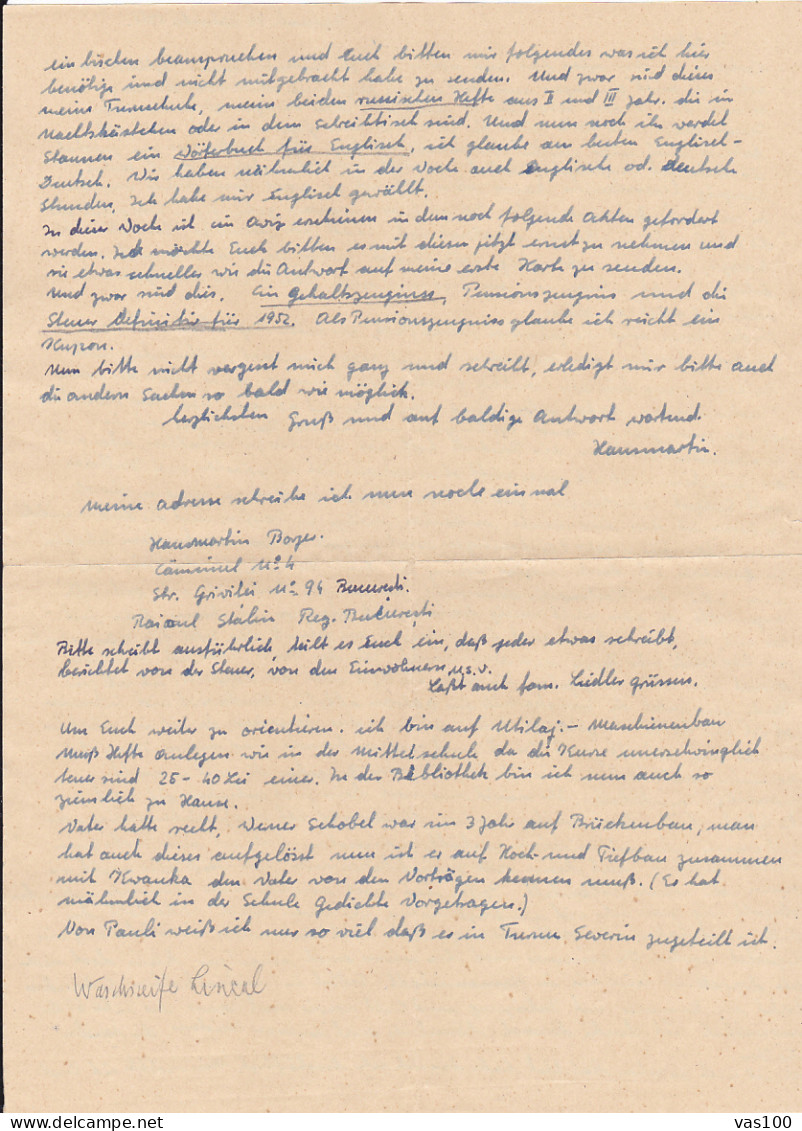 ein bischen beanspruchen und Euch bitten mir folgendes was ich hier
benötige und nicht mitgebracht habe zu senden. Und zwar sind dieses
meine Turnschuhe, mein beiden russischen Hefte aus II und III Jahr. die im
Nachtskästchen oder in dem Schreibtisch sind. Und nun noch ihr werdet
Staunen ein Wörterbuch für Englisch, ich glaube am besten Englisch-
Deutsch. Wir haben nähmlich in der Woche auch Englische od. Deutsche
Stunden, Ich habe mir Englisch gewählt.
In dieser Woche ist ein Aviz erschienen in dem noch folgende Akten gefordert
werden. Ich möchte Euch bitten es mit diesen jetzt ernst zu nehmen und
sie etwas schneller wie die Antwort auf meine erste Karte zu senden.
Und zwar sind dies. Ein Gehaltszeugniss, Pensionszeugnis und die
Steuer Definitiv für 1952. Als Pensionszeugniss glaube ich reicht ein
Kupon.
Nun bitte nicht vergesst mich ganz und schreibt, erledigt mir bitte auch
die andern Sachen so bald wie möglich.
herzlichsten Gruß und auf baldige Antwort wartend
Hansmartin.
Meine adresse schreibe ich nun noch einmal
Hansmartin
Căminul No 4
Str. Griviței No 94 București.
Raionul Stalin Reg. București
Bitte schreibt ausführlich teilt es Euch ein, daß jeder etwas schreibt,
berichtet von der Steuer, von den Einwohnern u.s.v.
Laßt auch fam. Liedler grüssen.
Um Euch weiter zu orientieren. ich bin auf Utilaj. – Maschienenbau
Muß Hefte anlegen wie in der Mittelschule da die Kurse unerschwinglich
teuer sind 25 – 40 Lei einer. In der Bibliothek bin ich nun auch so
ziemlich zu Hause.
Vater hatte recht, Werner Schobel war im 3 Jahr auf Brückenbau, man
hat auch dieses aufgelösst nun ist er auf Hoch- und Tiefbau zusammen
mit den Vater von den Vorträgen kennen muß. (Es hat
nähmlich in der Schule Gedichte Vorgetragen.)
Von Pauli weiß ich nur so viel daß es in Turnu Severin zugeteilt ist.
Waschseife
vas100